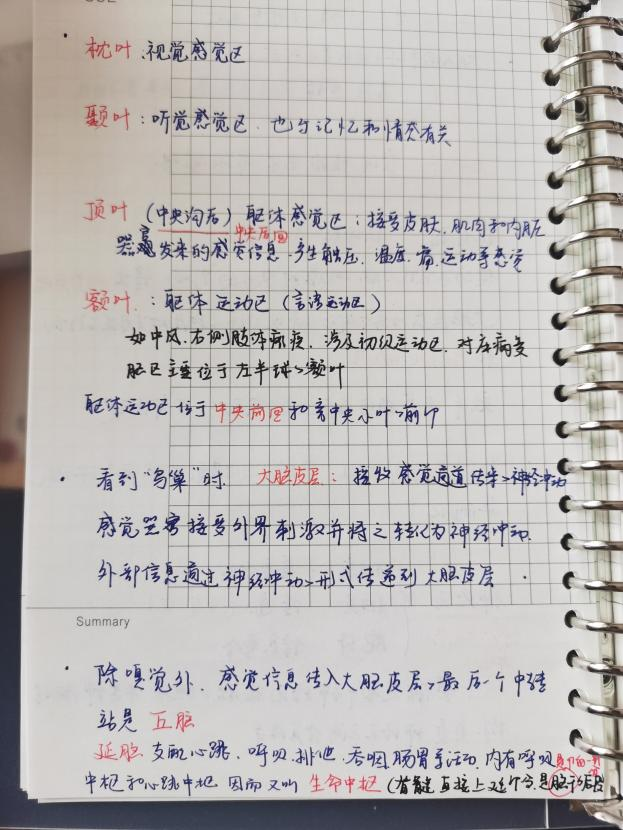 枕叶:视觉感觉区
颞叶:听觉感觉区.也与记忆和情绪有关
顶叶(中央沟后)躯体感觉区:接受皮肤.肌肉和内脏
中央后回
器官发来的感觉信息.产生触压.温度.痛.运动等感觉
额叶.:躯体运动区(言语运动区)
如中风.右侧肢体瘫痪.涉及初级运动区.对应病变
脑区主要位于左半球之额叶
躯体运动区位于中央前回和旁中央小叶之前部
看到"鸟巢"时.大脑皮层:接收感觉通道传来之神经冲动
感觉器官接受外界刺激并将之转化为神经冲动.
外部信息通过神经冲动之形式传递到大脑皮层.
Summary
除嗅觉外.感觉信息传入大脑皮层之最后一个中转
站是
延脑 支配心跳.呼吸.排泄.吞咽.肠胃等活动.内有呼吸
中枢和心跳中枢.因而又叫 生命中枢